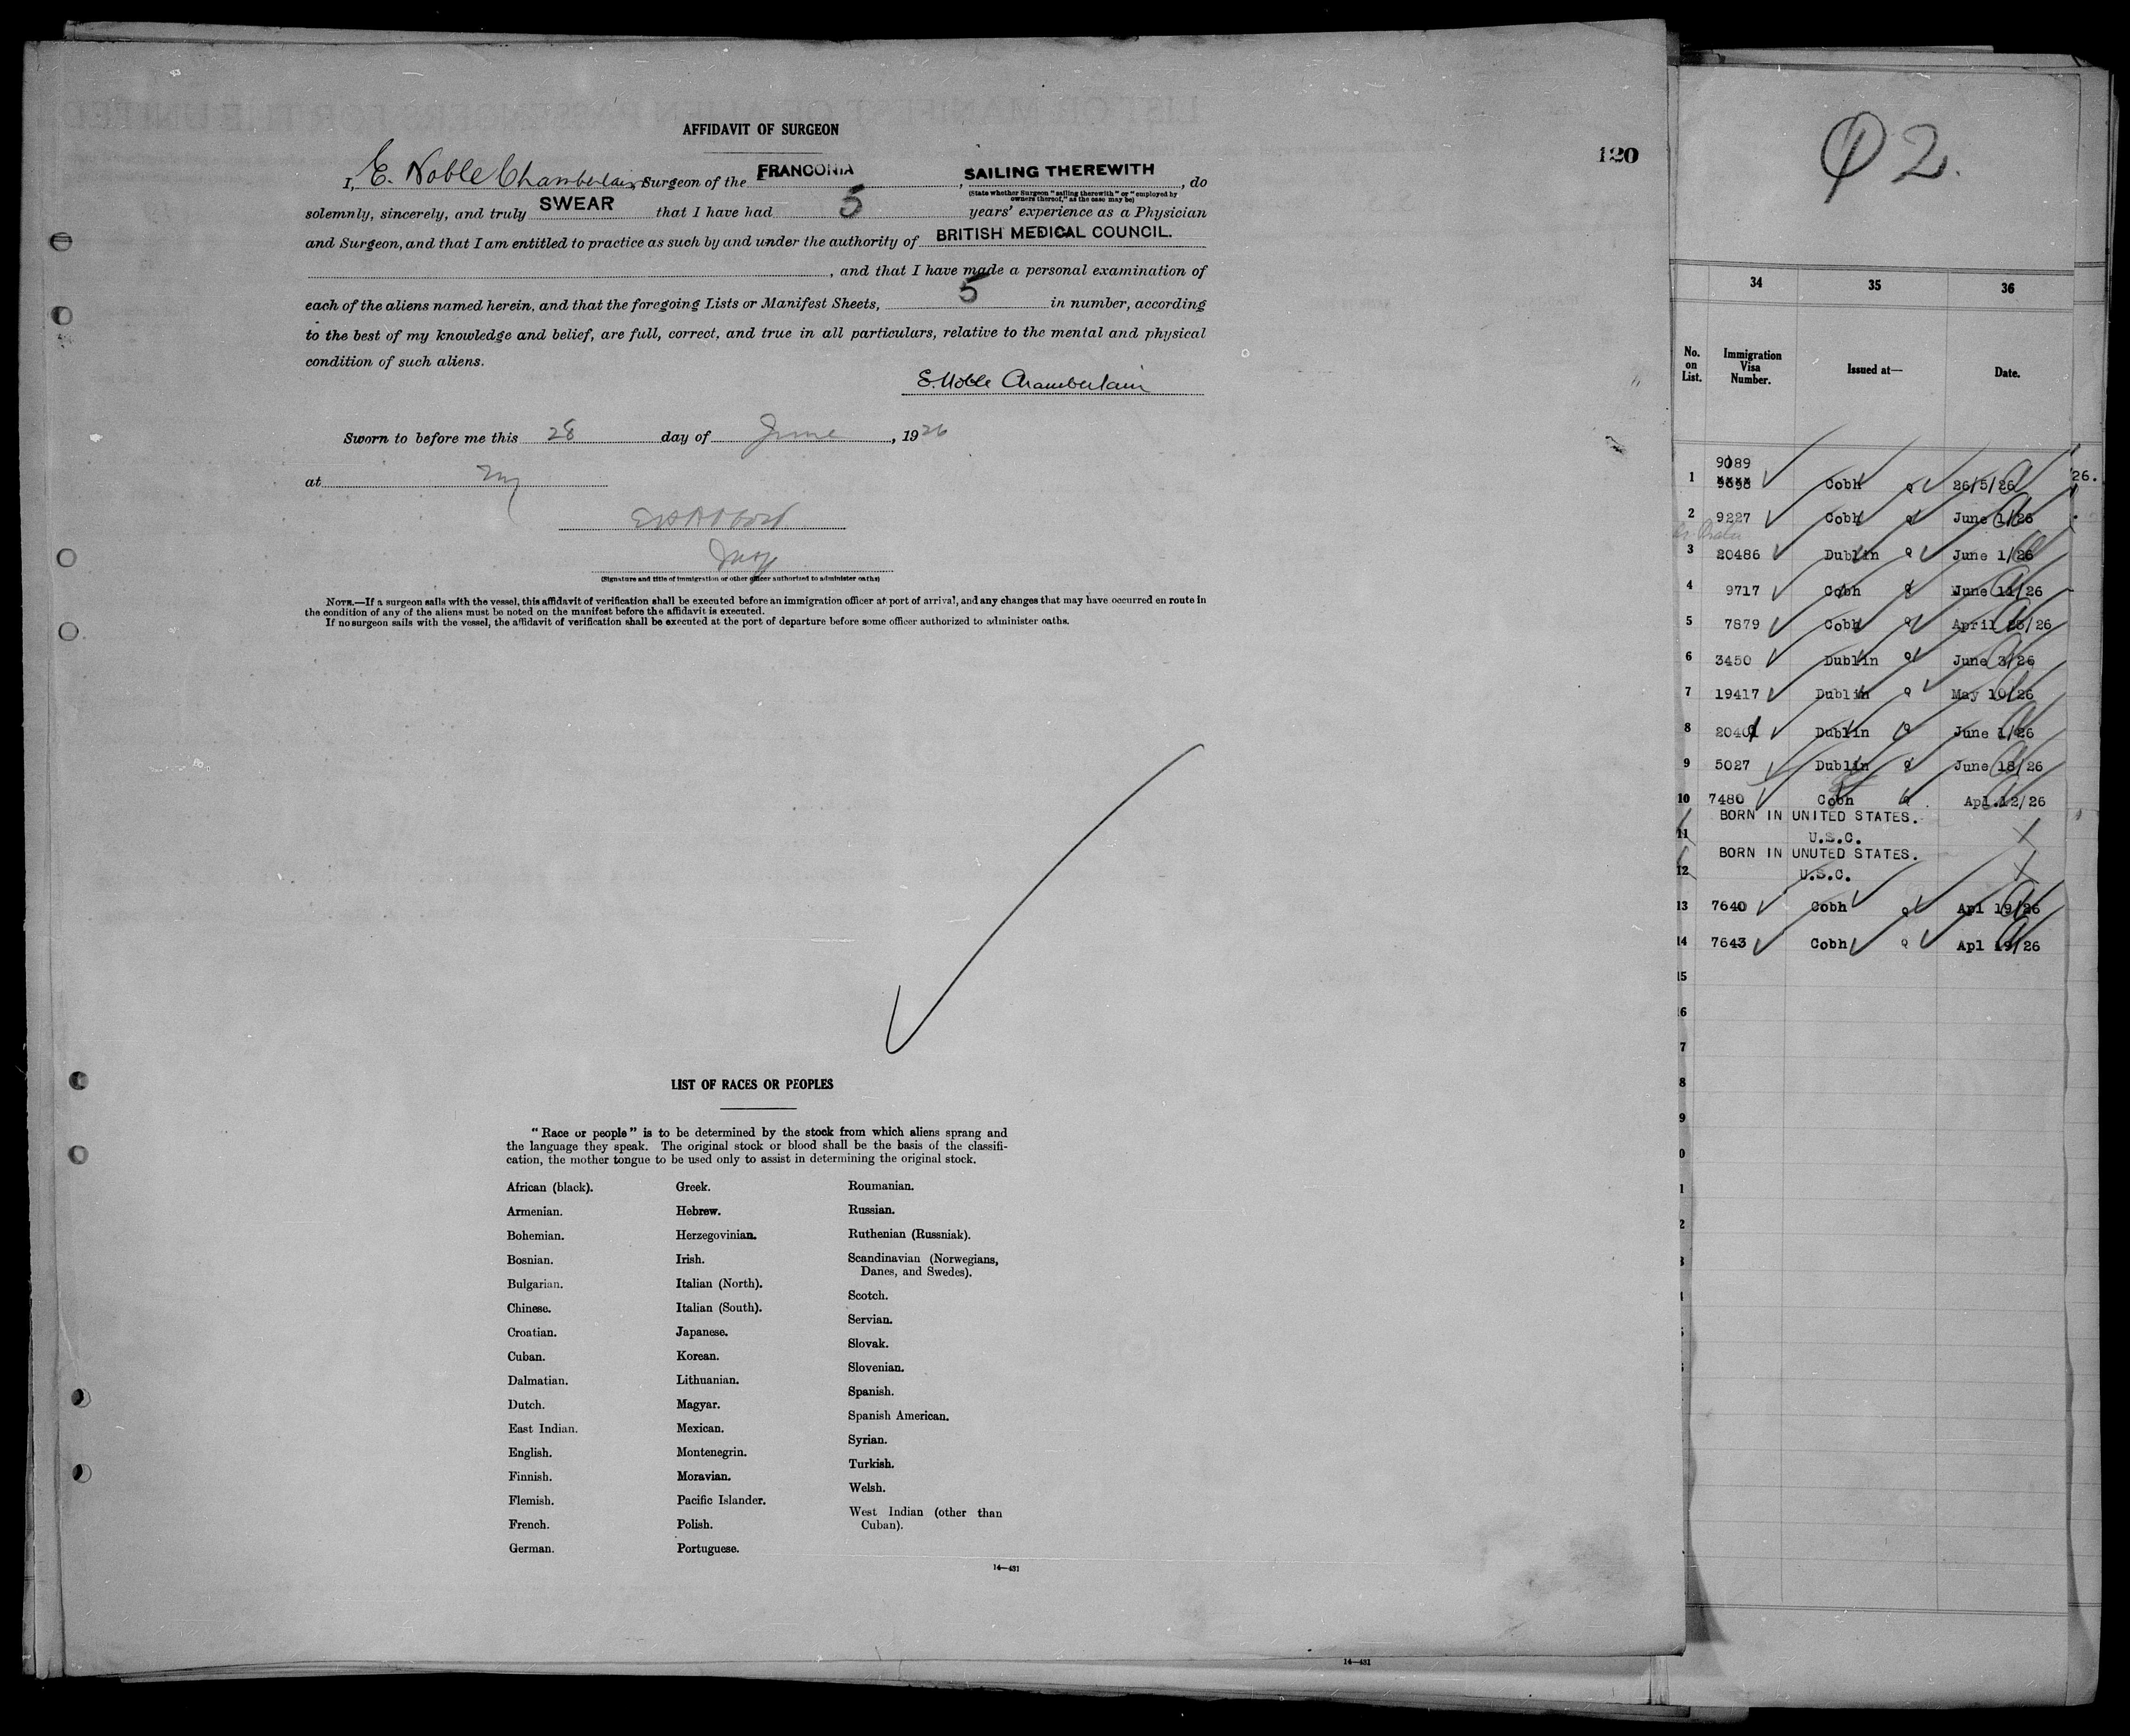 AFFIDAVIT OF SURGEON
120
I, E. Noble Chamberlain, Surgeon of the FRANCONIA, SAILING THEREWITH, do
(State whether Surgeon "sailing therewith" or "employed by
owners thereof," as the case may be)
solemnly, sincerely, and truly SWEAR that I have had 5 years' experience as a Physician
and Surgeon, and that I am entitled to practice as such by and under the authority of BRITISH MEDICAL COUNCIL.
, and that I have made a personal examination of
each of the aliens named herein, and that the foregoing Lists or Manifest Sheets, 5 in number, according
to the best of my knowledge and belief, are full, correct, and true in all particulars, relative to the mental and physical
condition of such aliens.
E. Noble Chamberlain
Sworn to before me this 28 day of June, 1926
at NY
(Signature and title of immigration or other officer authorized to administer oaths)
NOTE.—If a surgeon sails with the vessel, this affidavit of verification shall be executed before an immigration officer at port of arrival, and any changes that may have occurred en route in
the condition of any of the aliens must be noted on the manifest before the affidavit is executed.
If no surgeon sails with the vessel, the affidavit of verification shall be executed at the port of departure before some officer authorized to administer oaths.
LIST OF RACES OR PEOPLES
"Race or people" is to be determined by the stock from which aliens sprang and
the language they speak. The original stock or blood shall be the basis of the classifi-
cation, the mother tongue to be used only to assist in determining the original stock.
African (black).
Armenian.
Bohemian.
Bosnian.
Bulgarian.
Chinese.
Croatian.
Cuban.
Dalmatian.
Dutch.
East Indian.
English.
Finnish.
Flemish.
French.
German.
Greek.
Hebrew.
Herzegovinian.
Irish.
Italian (North).
Italian (South).
Japanese.
Korean.
Lithuanian.
Magyar.
Mexican.
Montenegrin.
Moravian.
Pacific Islander.
Polish.
Portuguese.
Roumanian.
Russian.
Ruthenian (Russniak).
Scandinavian (Norwegians,
Danes, and Swedes).
Scotch.
Servian.
Slovak.
Slovenian.
Spanish.
Spanish American.
Syrian.
Turkish.
Welsh.
West Indian (other than
Cuban).
14—431
14—431
2.
34 35 36
No. on List. Immigration Visa Number. Issued at— Date.
9089
1 Cobh 26/5/26 26.
2 9227 Cobh June 1/26
3 20486 Dublin June 1/26
4 9717 Cobh June 11/26
5 7879 Cobh April 26/26
6 3450 Dublin June 3/26
7 19417 Dublin May 10/26
8 20401 Dublin June 1/26
9 5027 Dublin June 18/26
10 7480 Cobh Apl.12/26
BORN IN UNITED STATES.
11 U.S.C.
BORN IN UNUTED STATES.
12 U.S.C.
13 7640 Cobh Apl 19/26
14 7643 Cobh Apl 19/26
15
6
7
8
9
0
1
2